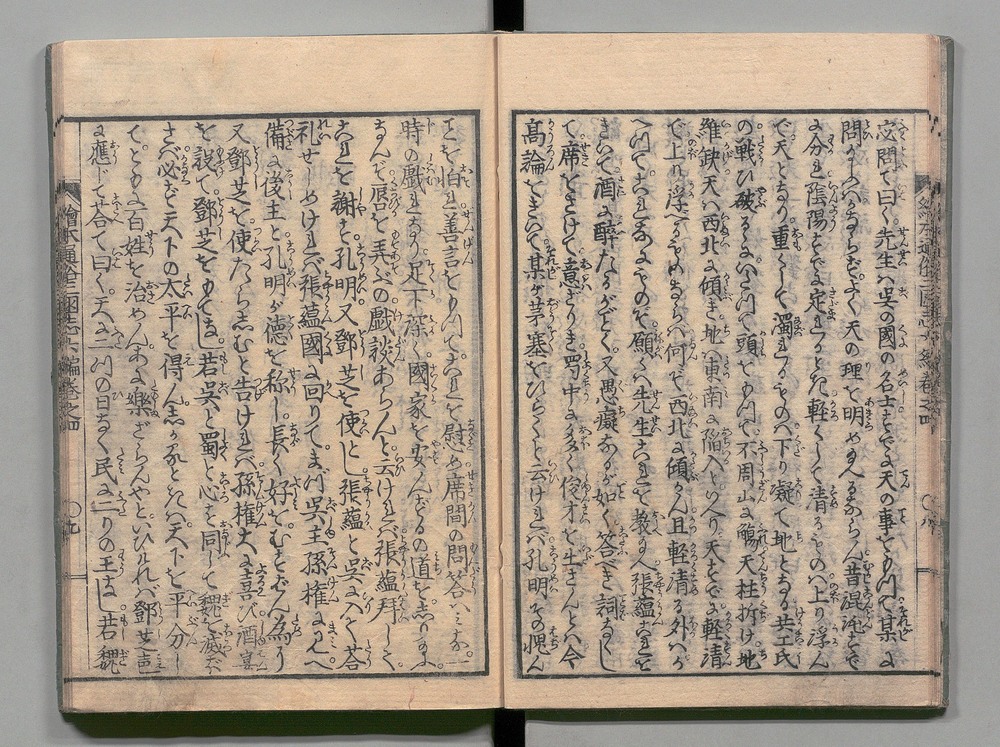 宓問て曰く先生ハ呉の國の名士とて天の事をもつて某に
問給ふかならずよく天の理を明め玄へるならん昔混沌とで
に分れ陰陽とでに定るとき軽くして清るものハ上り浮んで
天となり重して濁れるものハ下り凝て地となる共工氏
の戦ひ破るるに於て頭をもつて不周山に觸天柱折け地
維缺天ハ西北に傾き地ハ東南に陥入といへり天とでに軽清
て上り浮べるものならバ何ぞ西北に傾かん且軽清る外ハか
へつてこれ
なにものぞ願くハ先生これを教玄へ張蘊これを
きいて酒に醉たるがごとく又愚癡なるが如く答べき詞なくし
て席をさけて意ざりき蜀中に多く俊才を生きんとハ今
高論をきいて某が茅塞をひらくと云けれバ孔明その愧ん
ことを怕れ善言をもつてこれを慰め席間の問答ハみな一
時の戯れなり足下深く國家を安んずるの道をしり玄ふ
なんぞ唇を弄ぶの戯談あらんと云けれバ張蘊拜して
これを謝す孔明又鄧芝を使とし張蘊と呉に入て答
礼せしめけれバ張蘊國に回りてまづ呉主孫權に見へ
備に後主と孔明が德を稱し長く好をむすばん為り
又鄧芝を使たらしむと告けれバ孫權大に喜び酒宴
を設て鄧芝をもてなし若呉と蜀と心を同して魏を滅な
さバ必ず天下の太平を得んしかるときハ天下を平分し
てともに百姓を治めんあに樂ざらんやといひけれバ鄧芝声
に應じて答て曰く天に二つの日なく民に二りの王なし若魏
繪本通俗三國志六編卷之四
〇九